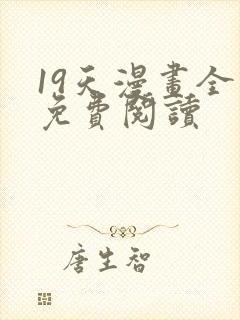 19天漫畫全
免費閱讀
唐生智